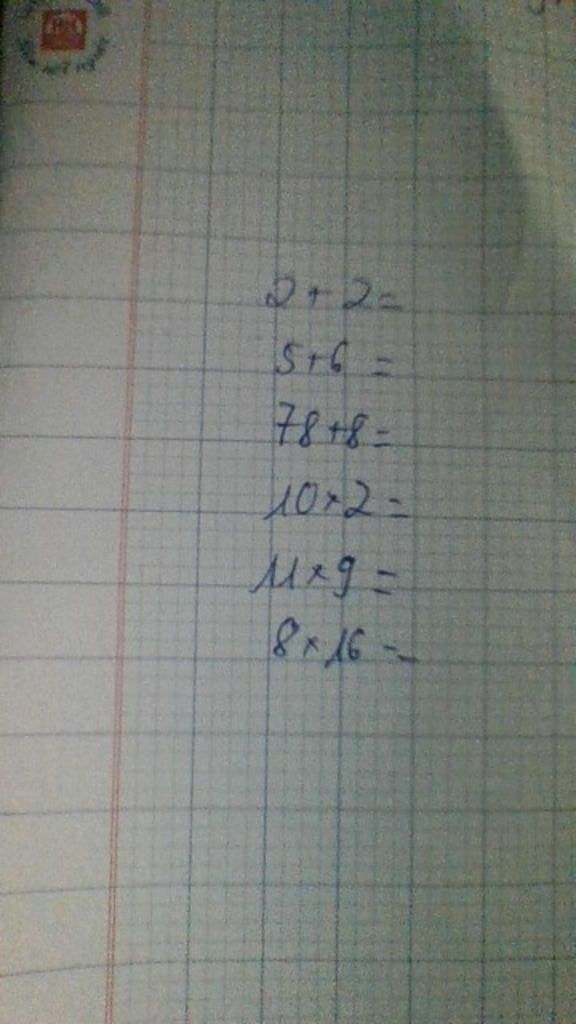 2 + 2 =
5 + 6 =
78 + 8 =
10 × 2 =
11 × 9 =
8 × 16 =